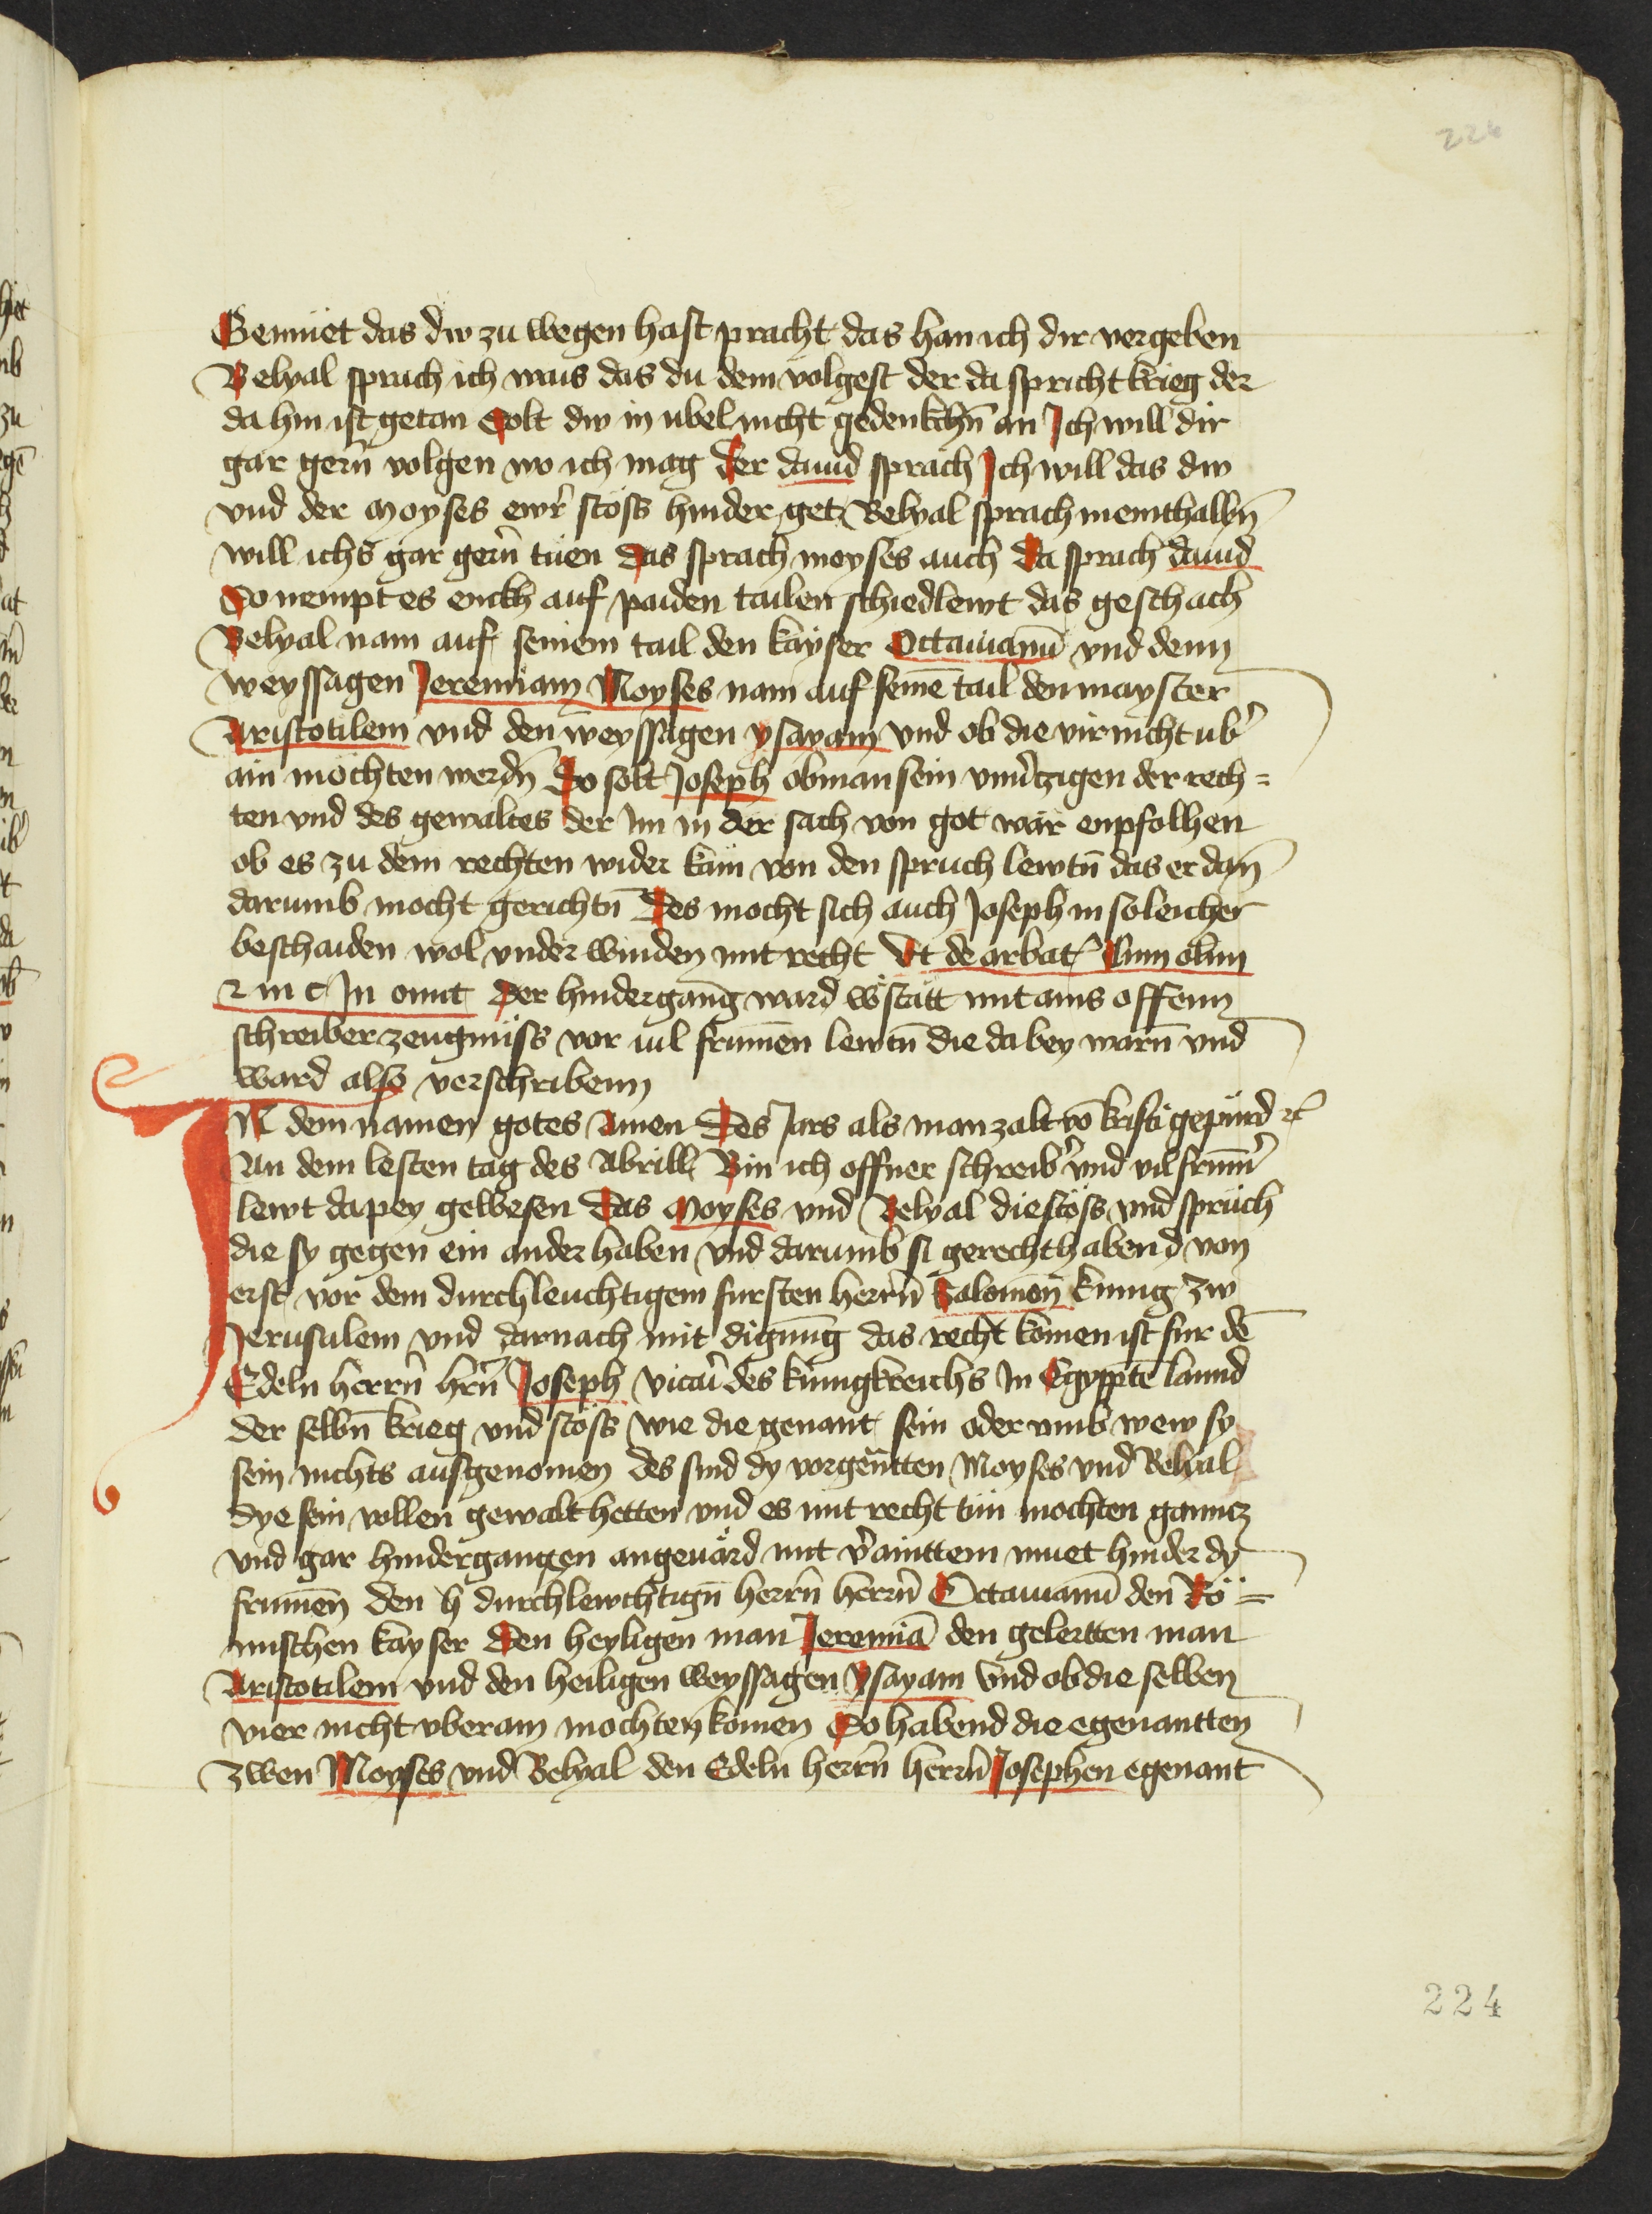 224
Gemuet das dw zu wegen hast pracht das han ich dir vergeben
Belyal sprach ich wais das du dem volgest der da spricht krieg der
da hin ist getan Solt dw in ubel nicht gedenkchn̄ an Ich will dir
gar gern̄ volgen wo ich mag Her dauid sprach Ich will das dw
vnd der Moyses ewr̄ stöss hinder get Belyal sprach meinthalbn̄
will ichs gar gern̄ tuen Das sprach moyses auch Da sprach dauid
So nempt es enckh auf paiden tailen schiedlewt das geschach
Belyal nam auf seinem tail den kayser Octauianū vnd denn
weyssagen Jeremiam Moyses nam auf seinē tail den mayster
Aristotilem vnd den weyssagen ysayam vnd ob die vir nicht ub̄
ain möchten werdn̄ So solt Joseph obman sein vnuerczigen der rech=
ten vnd des gewaltes der im in der sach von got wär enpfolhen
ob es zu dem rechten wider käm von den spruch lewtn̄ das er dan̄
darumb mocht gerichtn̄ Des mocht sich auch Joseph in soleicher
beschaiden wol vnder winden mit recht Vt de arbat Cum olim
2 in c In omit Der hindergang ward bstätt mit ains offenn
schreiber zeugnüss vor vil frumēn lewtn̄ die da bey warn̄ vnd
ward also verschribenn
IN dem namen gotes Amen Des Jars als man zalt vō kristi gepurd ꝛc
An dem lesten tag des Abrill Bin ich offner schreib̄ vnd vil frum̄
lewt da pey gewesen Das Moyses vnd Belyal die stöss vnd sprüch
die sy gegen ein ander haben vnd darumb si gerecht habend von
erst vor dem durchleuchtigem fursten herrn̄ Salomon kunig zw
Jerusalem vnd darnach mit digung das recht komen ist fur dē
Edeln herrn̄ hrn̄ Joseph vicari des kunigkreichs In Egyptē lannd
der selbn̄ krieg vnd stöss wie die genant sein oder vmb wew sy
sein nichts ausgenomen des sind dy vorgen̄tten Moyses vnd Belyal
dye sein vollen gewalt hetten vnd es mit recht tün mochten gancz
vnd gar hindergangen angeuärd mit v̄ainttem muet hinder dy
frumēn den h durchlewchtign̄ herrn̄ herrn̄ Octauianū den Rö=
mischen kayser Den heyligen man Jeremiā den gelertten man
Aristotilem vnd den heiligen weyssagen ysayam vnd ob die selben
vier nicht vberain mochten komen So habend die egenantten
zwen Moyses vnd Belyal den Edeln herrn̄ herrn̄ Josephen egenant
224